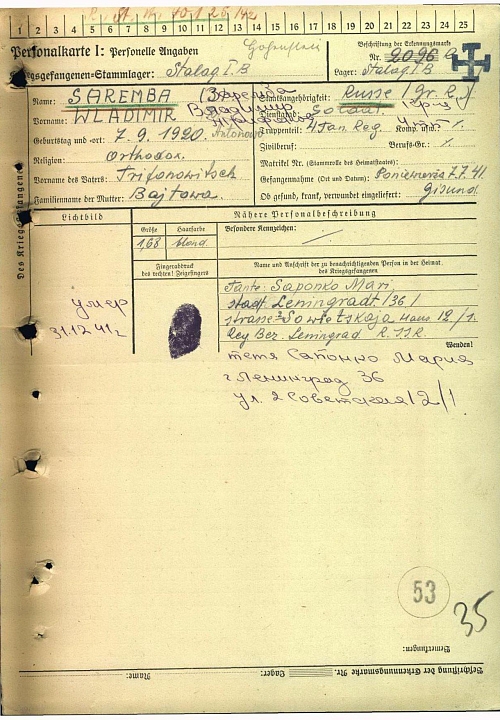 1 2 3 4 5 6 7 8 9 10 11 12 13 14 15 16 17 18 19 20 21 22 23 24 25
Personalkarte I: Personelle Angaben
Beschriftung der Erkennungsmarke
Nr. 2096
Kriegsgefangenen-Stammlager: Stalag I B
Lager: Stalag I B
Name: SAREMBA (Заремба
Staatsangehörigkeit: Russe (Gr. R.)
Vorname: WLADIMIR Владимир
Dienstgrad: Soldat
Truppenteil: 4 Pan. Reg. Komp. usw.:
Geburtstag und -ort: 7.9.1920.
Zivilberuf: Berufs-Gr.:
Religion: Orthodox.
Matrikel Nr. (Stammrolle des Heimatstaates):
Vorname des Vaters: Trifonowitsch
Gefangennahme (Ort und Datum): 7.7.41.
Familienname der Mutter: Bajtowa.
Ob gesund, krank, verwundet eingeliefert: Gesund
Des Kriegsgefangenen
Lichtbild
Nähere Personalbeschreibung
Größe
Haarfarbe
Besondere Kennzeichen:
1,68
blond
Fingerabdruck
des rechten! Zeigefingers
Name und Anschrift der zu benachrichtigenden Person in der Heimat
des Kriegsgefangenen
Tante: Saponko Mari,
stadt Leningradt /36/
strasse 2 Sowietskaja Haus 12/1.
Bez. Leningrad
Wenden!
умер
31.12.41 г.
тетя Сапонко Мария
г. Ленинград 36
ул. 2 Советская 12/1
53
35
Bemerkungen:
Beschriftung der Erkennungsmarke Nr.
Lager:
Name: